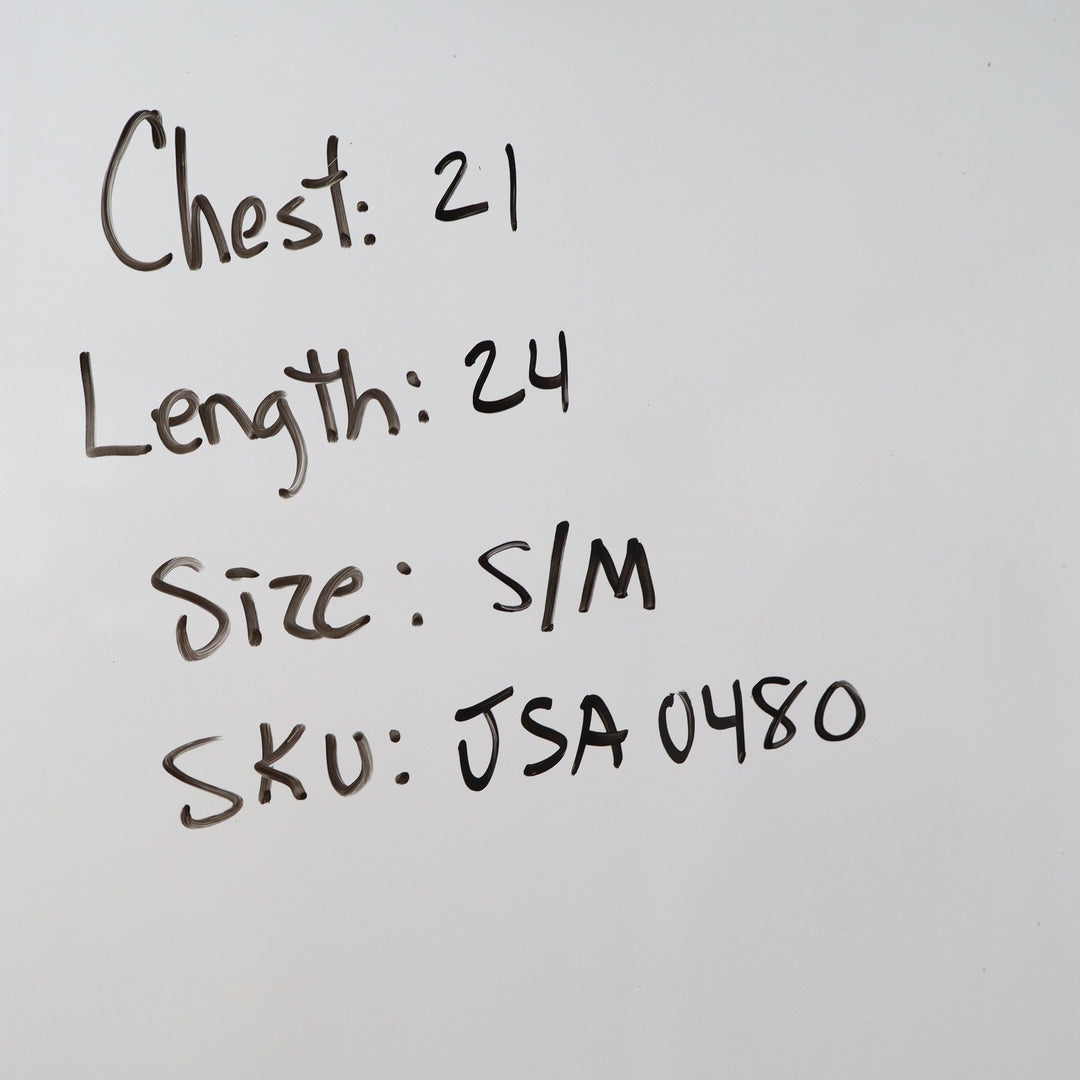 Chest: 21
Length: 24
Size: S/M
SKU: JSA 0480